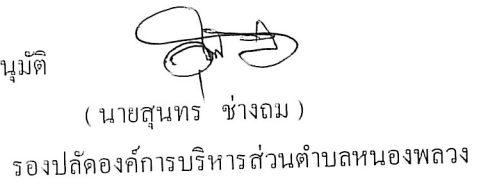 นุมัติ
( นายสุนทร ช่างถม )
รองปลัดองค์การบริหารส่วนตำบลหนองพลวง